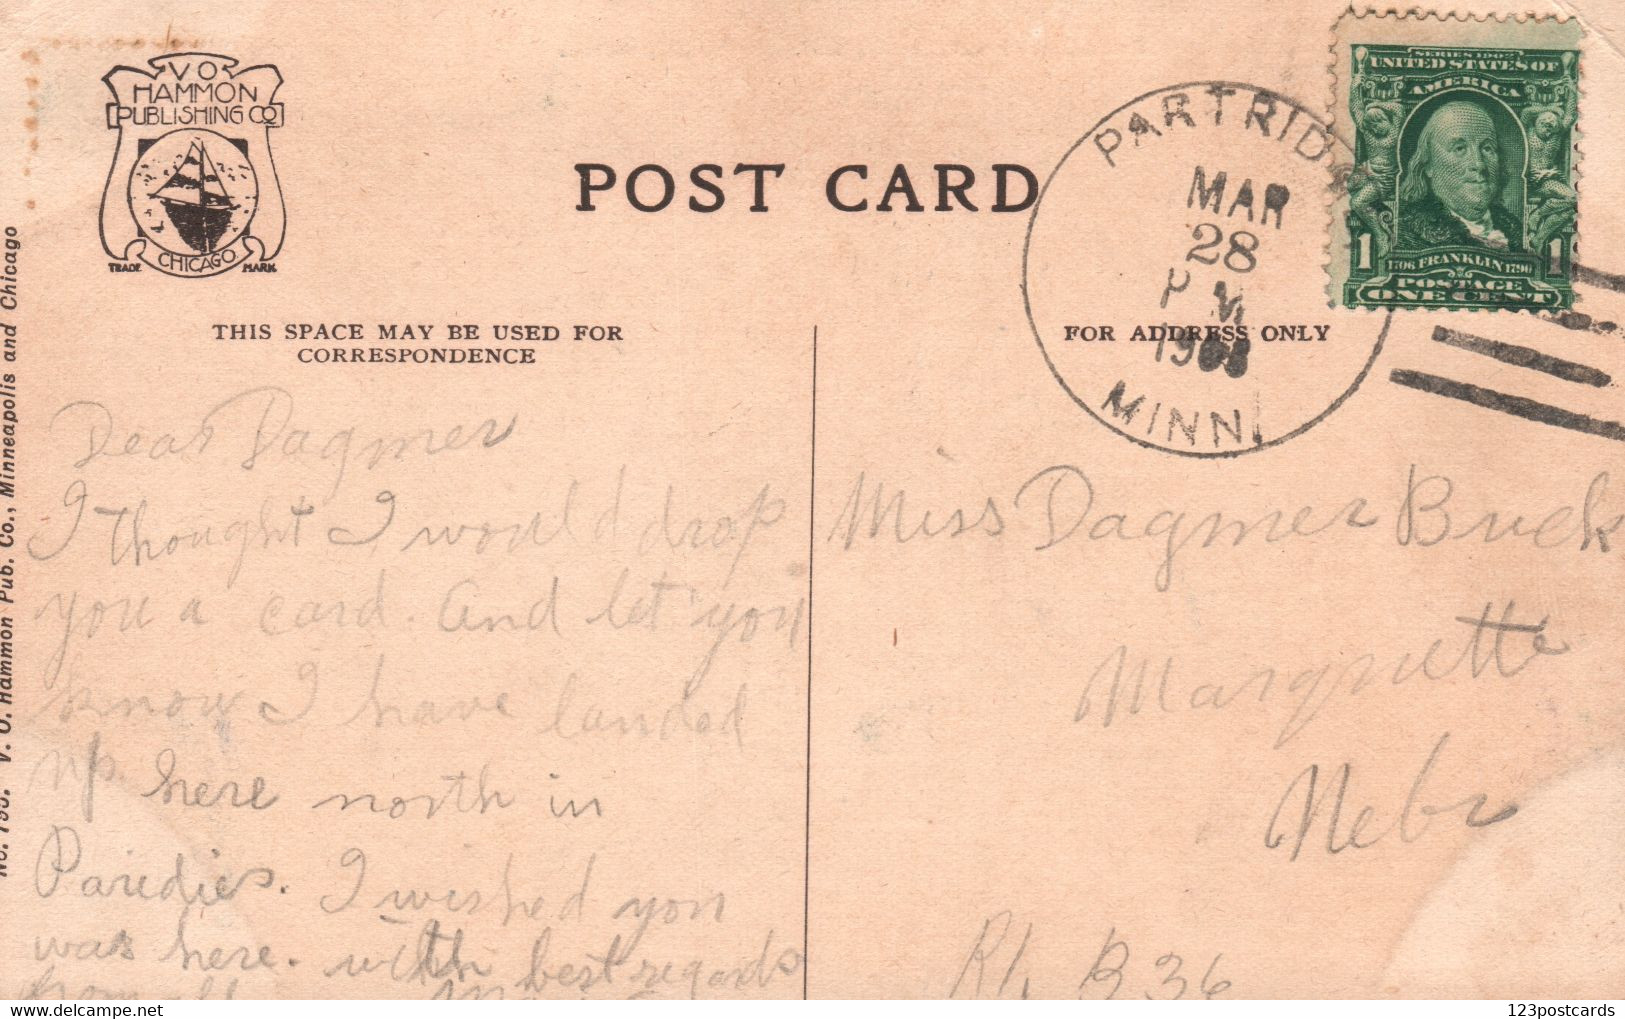 V O
HAMMON
PUBLISHING CO
CHICAGO
TRADE MARK
POST CARD
THIS SPACE MAY BE USED FOR
CORRESPONDENCE
FOR ADDRESS ONLY
V. O. Hammon Pub. Co., Minneapolis and Chicago
PARTRID
MAR
28
P M
MINN.
UNITED STATES OF
AMERICA
1 1
1706 FRANKLIN 1790
POSTAGE
ONE CENT
Dear Dagmer
I thought I would drop
you a card. And let you
know I have landed
up here north in
Paredies. I wished you
was here. with best regards
from
Miss Dagmer Buck
Marquette
Nebr
R1, B 36
123postcards